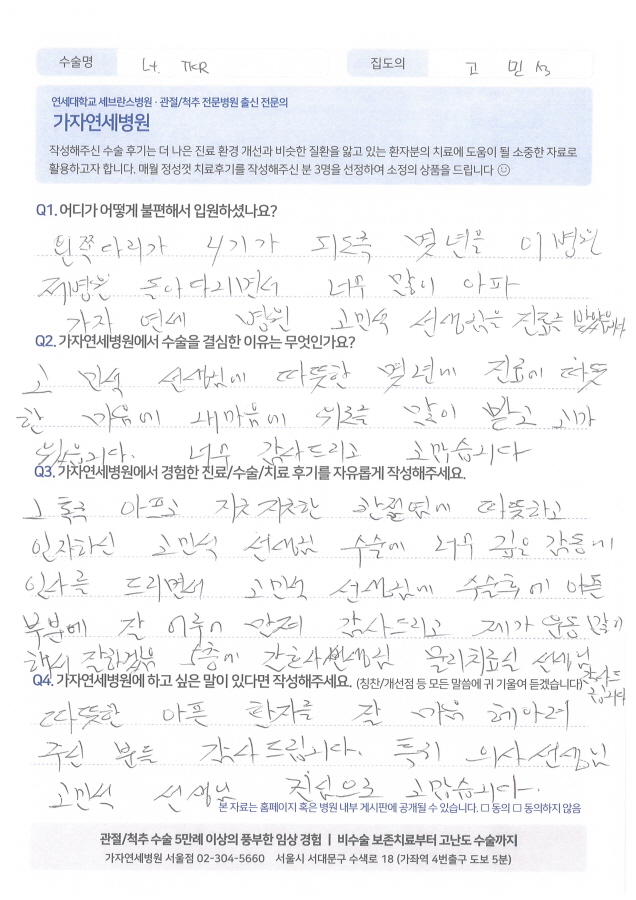 수술명 Lt. TKR 집도의 고 민석
연세대학교 세브란스병원 · 관절/척추 전문병원 출신 전문의
가자연세병원
작성해주신 수술 후기는 더 나은 진료 환경 개선과 비슷한 질환을 앓고 있는 환자분의 치료에 도움이 될 소중한 자료로
활용하고자 합니다. 매월 정성껏 치료후기를 작성해주신 분 3명을 선정하여 소정의 상품을 드립니다 ☺
Q1. 어디가 어떻게 불편해서 입원하셨나요?
왼쪽다리가 4기가 되도록 몇 년을 이 병원
저병원 돌아다니면서 너무 많이 아파
가자 연세 병원 고민석 선생님을 진료를 받았읍니다
Q2. 가자연세병원에서 수술을 결심한 이유는 무엇인가요?
고 민석 선생님에 따뜻한 몇 년에 진료에 따뜻
한 마음에 내마음에 위로를 많이 받고
너무 감사드리고 고맙습니다
Q3. 가자연세병원에서 경험한 진료/수술/치료 후기를 자유롭게 작성해주세요.
아프고 지치 지치한 관절염에 따뜻하고
인자하신 고민석 선생님 수술에 너무 깊은 감동에
인사를 드리면서 고민석 선생님에 수술후에 아픈
부분에 잘 이루어 만져 감사드리고 제가 운동 많이
해서 잘하겠음 5층에 간호사선생님 물리치료실 선생님
감사드립니다
Q4. 가자연세병원에 하고 싶은 말이 있다면 작성해주세요. (칭찬/개선점 등 모든 말씀에 귀 기울여 듣겠습니다)
따뜻한 아픈 환자를 잘 마음 헤아려
주신 분들 감사드립니다. 특히 의사선생님
고민석 선생님 진심으로 고맙습니다.
본 자료는 홈페이지 혹은 병원 내부 게시판에 공개될 수 있습니다. □ 동의 □ 동의하지 않음
관절/척추 수술 5만례 이상의 풍부한 임상 경험 | 비수술 보존치료부터 고난도 수술까지
가자연세병원 서울점 02-304-5660 서울시 서대문구 수색로 18 (가좌역 4번출구 도보 5분)